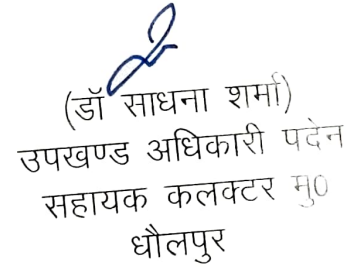 (डॉ साधना शर्मा)
उपखण्ड अधिकारी पदेन
सहायक कलक्टर मु०
धौलपुर